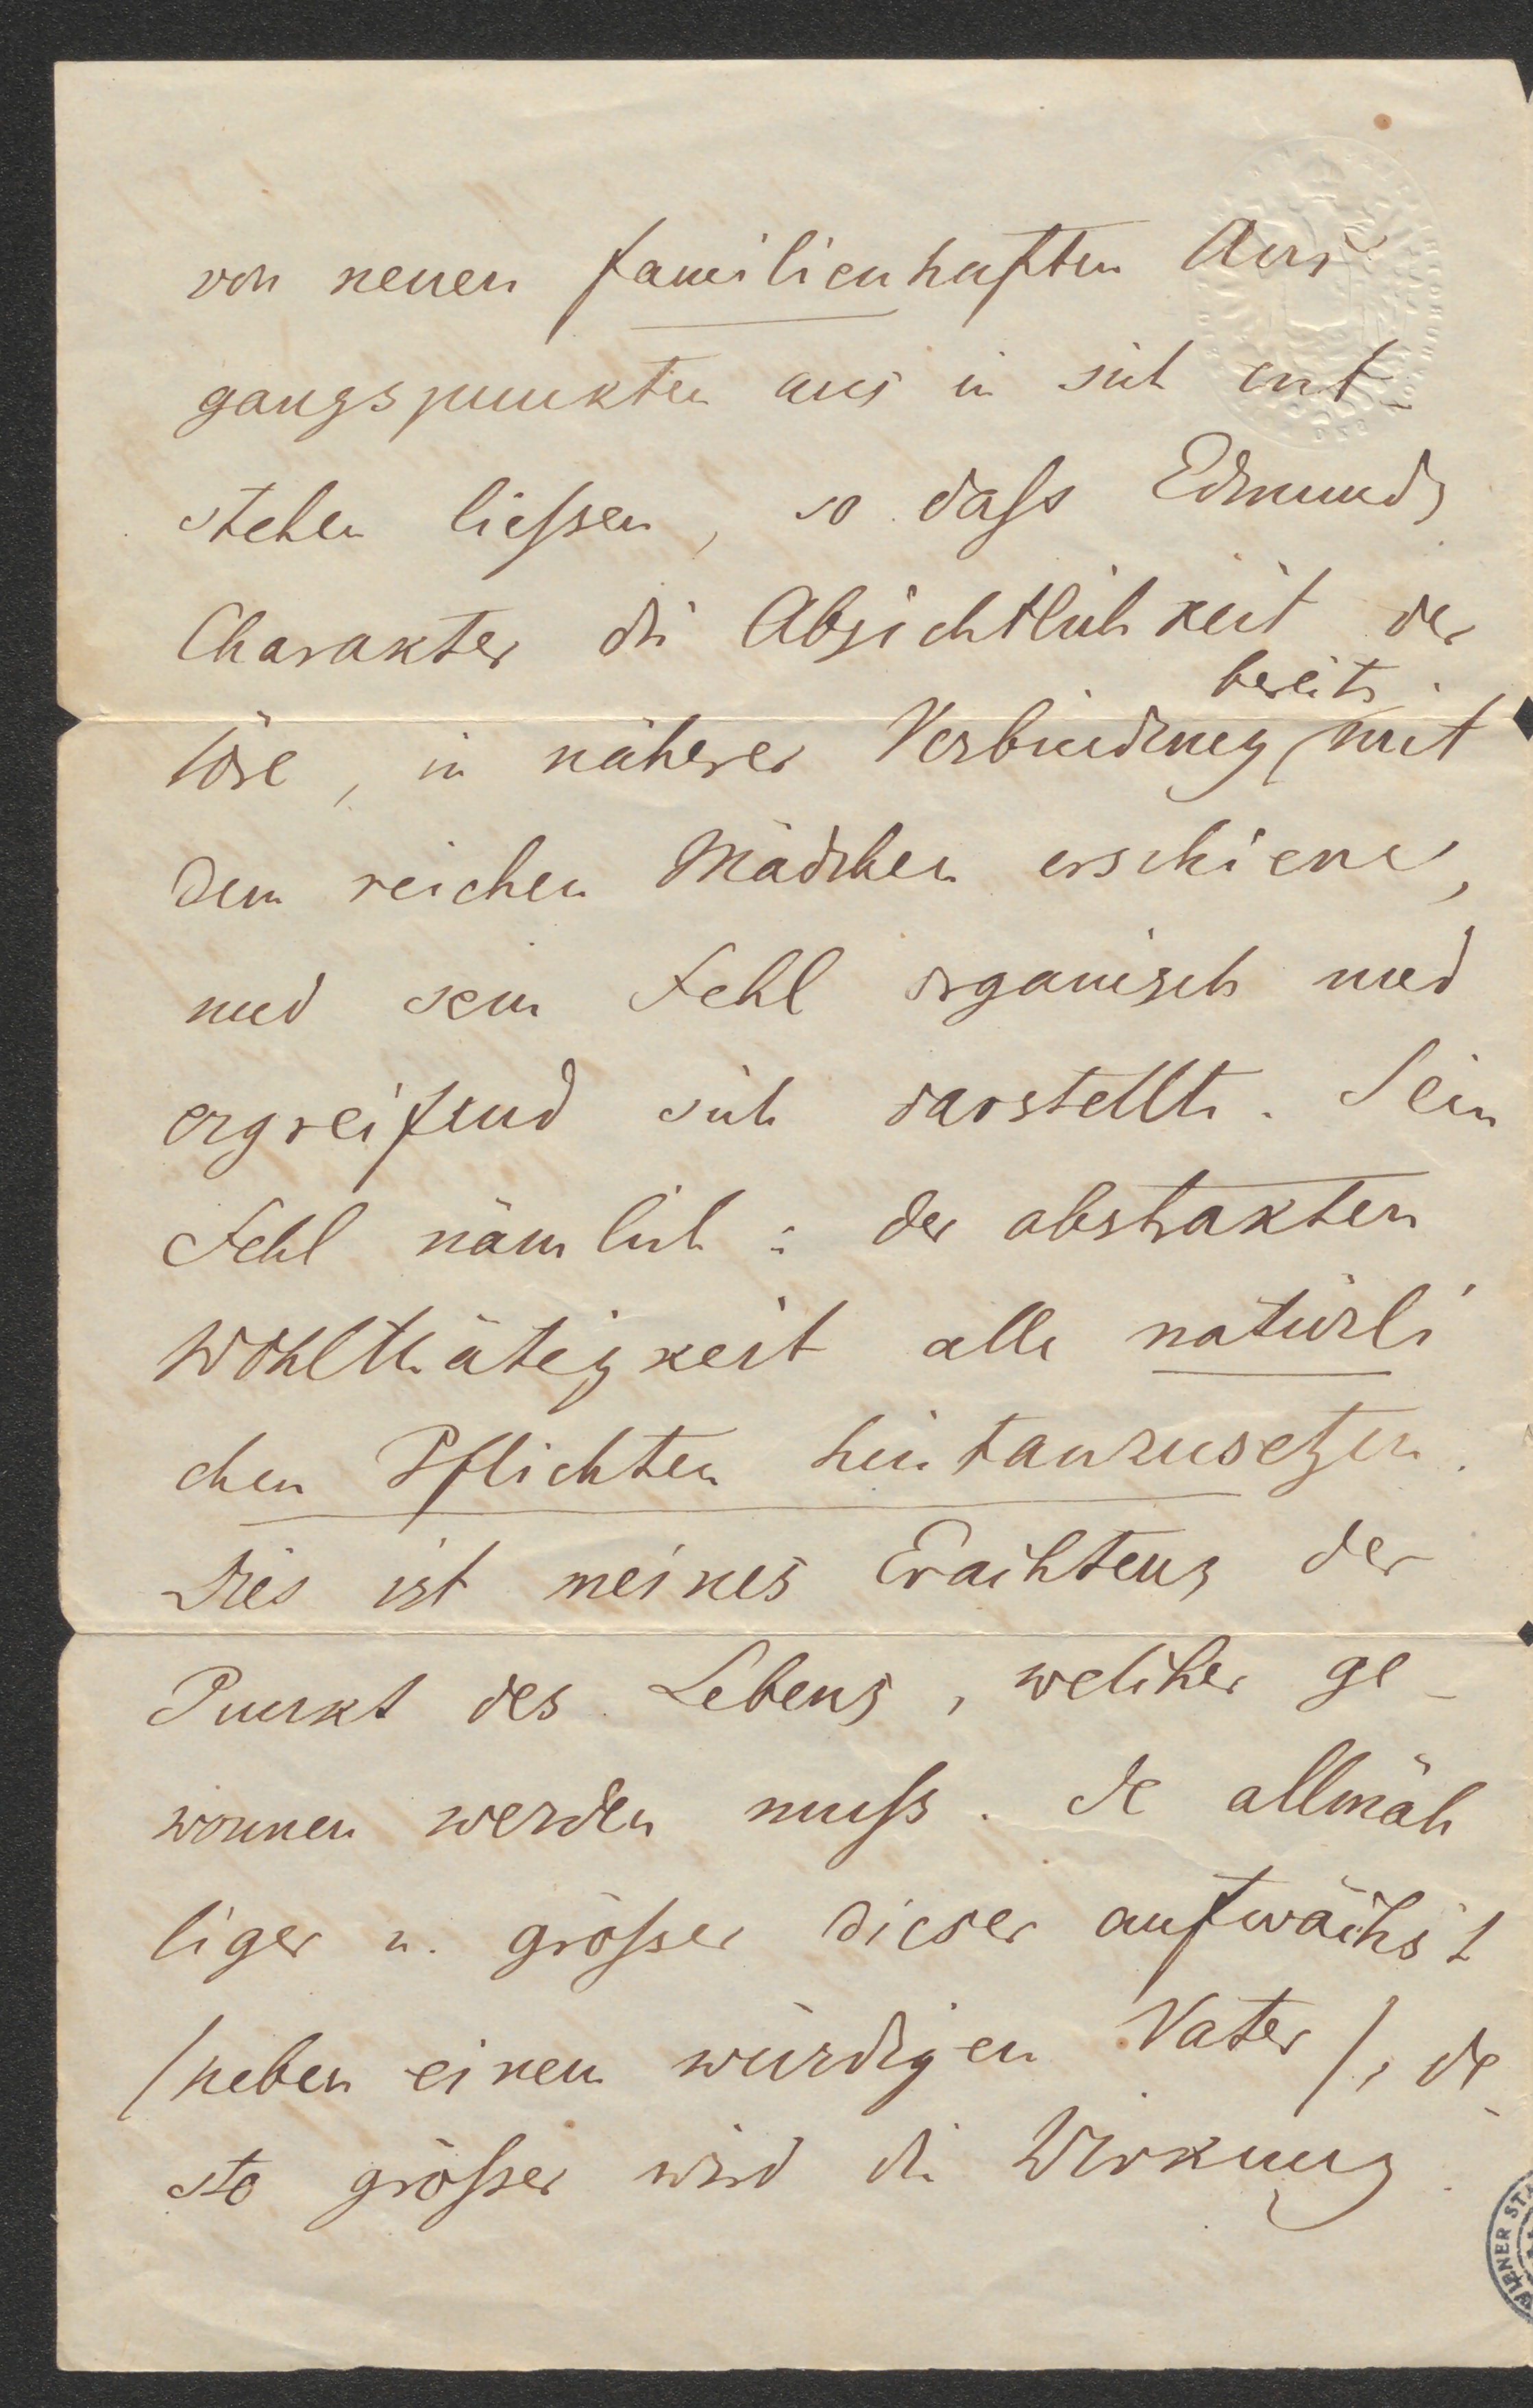 von neuen familienhaften Aus
gangspunkten aus in sich ent-
stehen liessen, so dass Edmunds
Charakter die Absichtlichkeit ver
bereits
löre, in näherer Verbindung mit
dem reichen Mädchen erschiene,
und sein Fehl organisch und
ergreifend sich darstellte. Sein
Fehl nämlich: der abstrakten
Wohlthätigkeit alle natürli
chen Pflichten hintanzusetzen.
Dies ist meines Erachtens der
Punkt des Lebens, welcher ge-
wonnen werden muss. Je allmäh
liger u. grösser dieser aufwächst
/neben einem würdigen Vater/, de
sto grösser wird die Wirkung.
WIENER STA